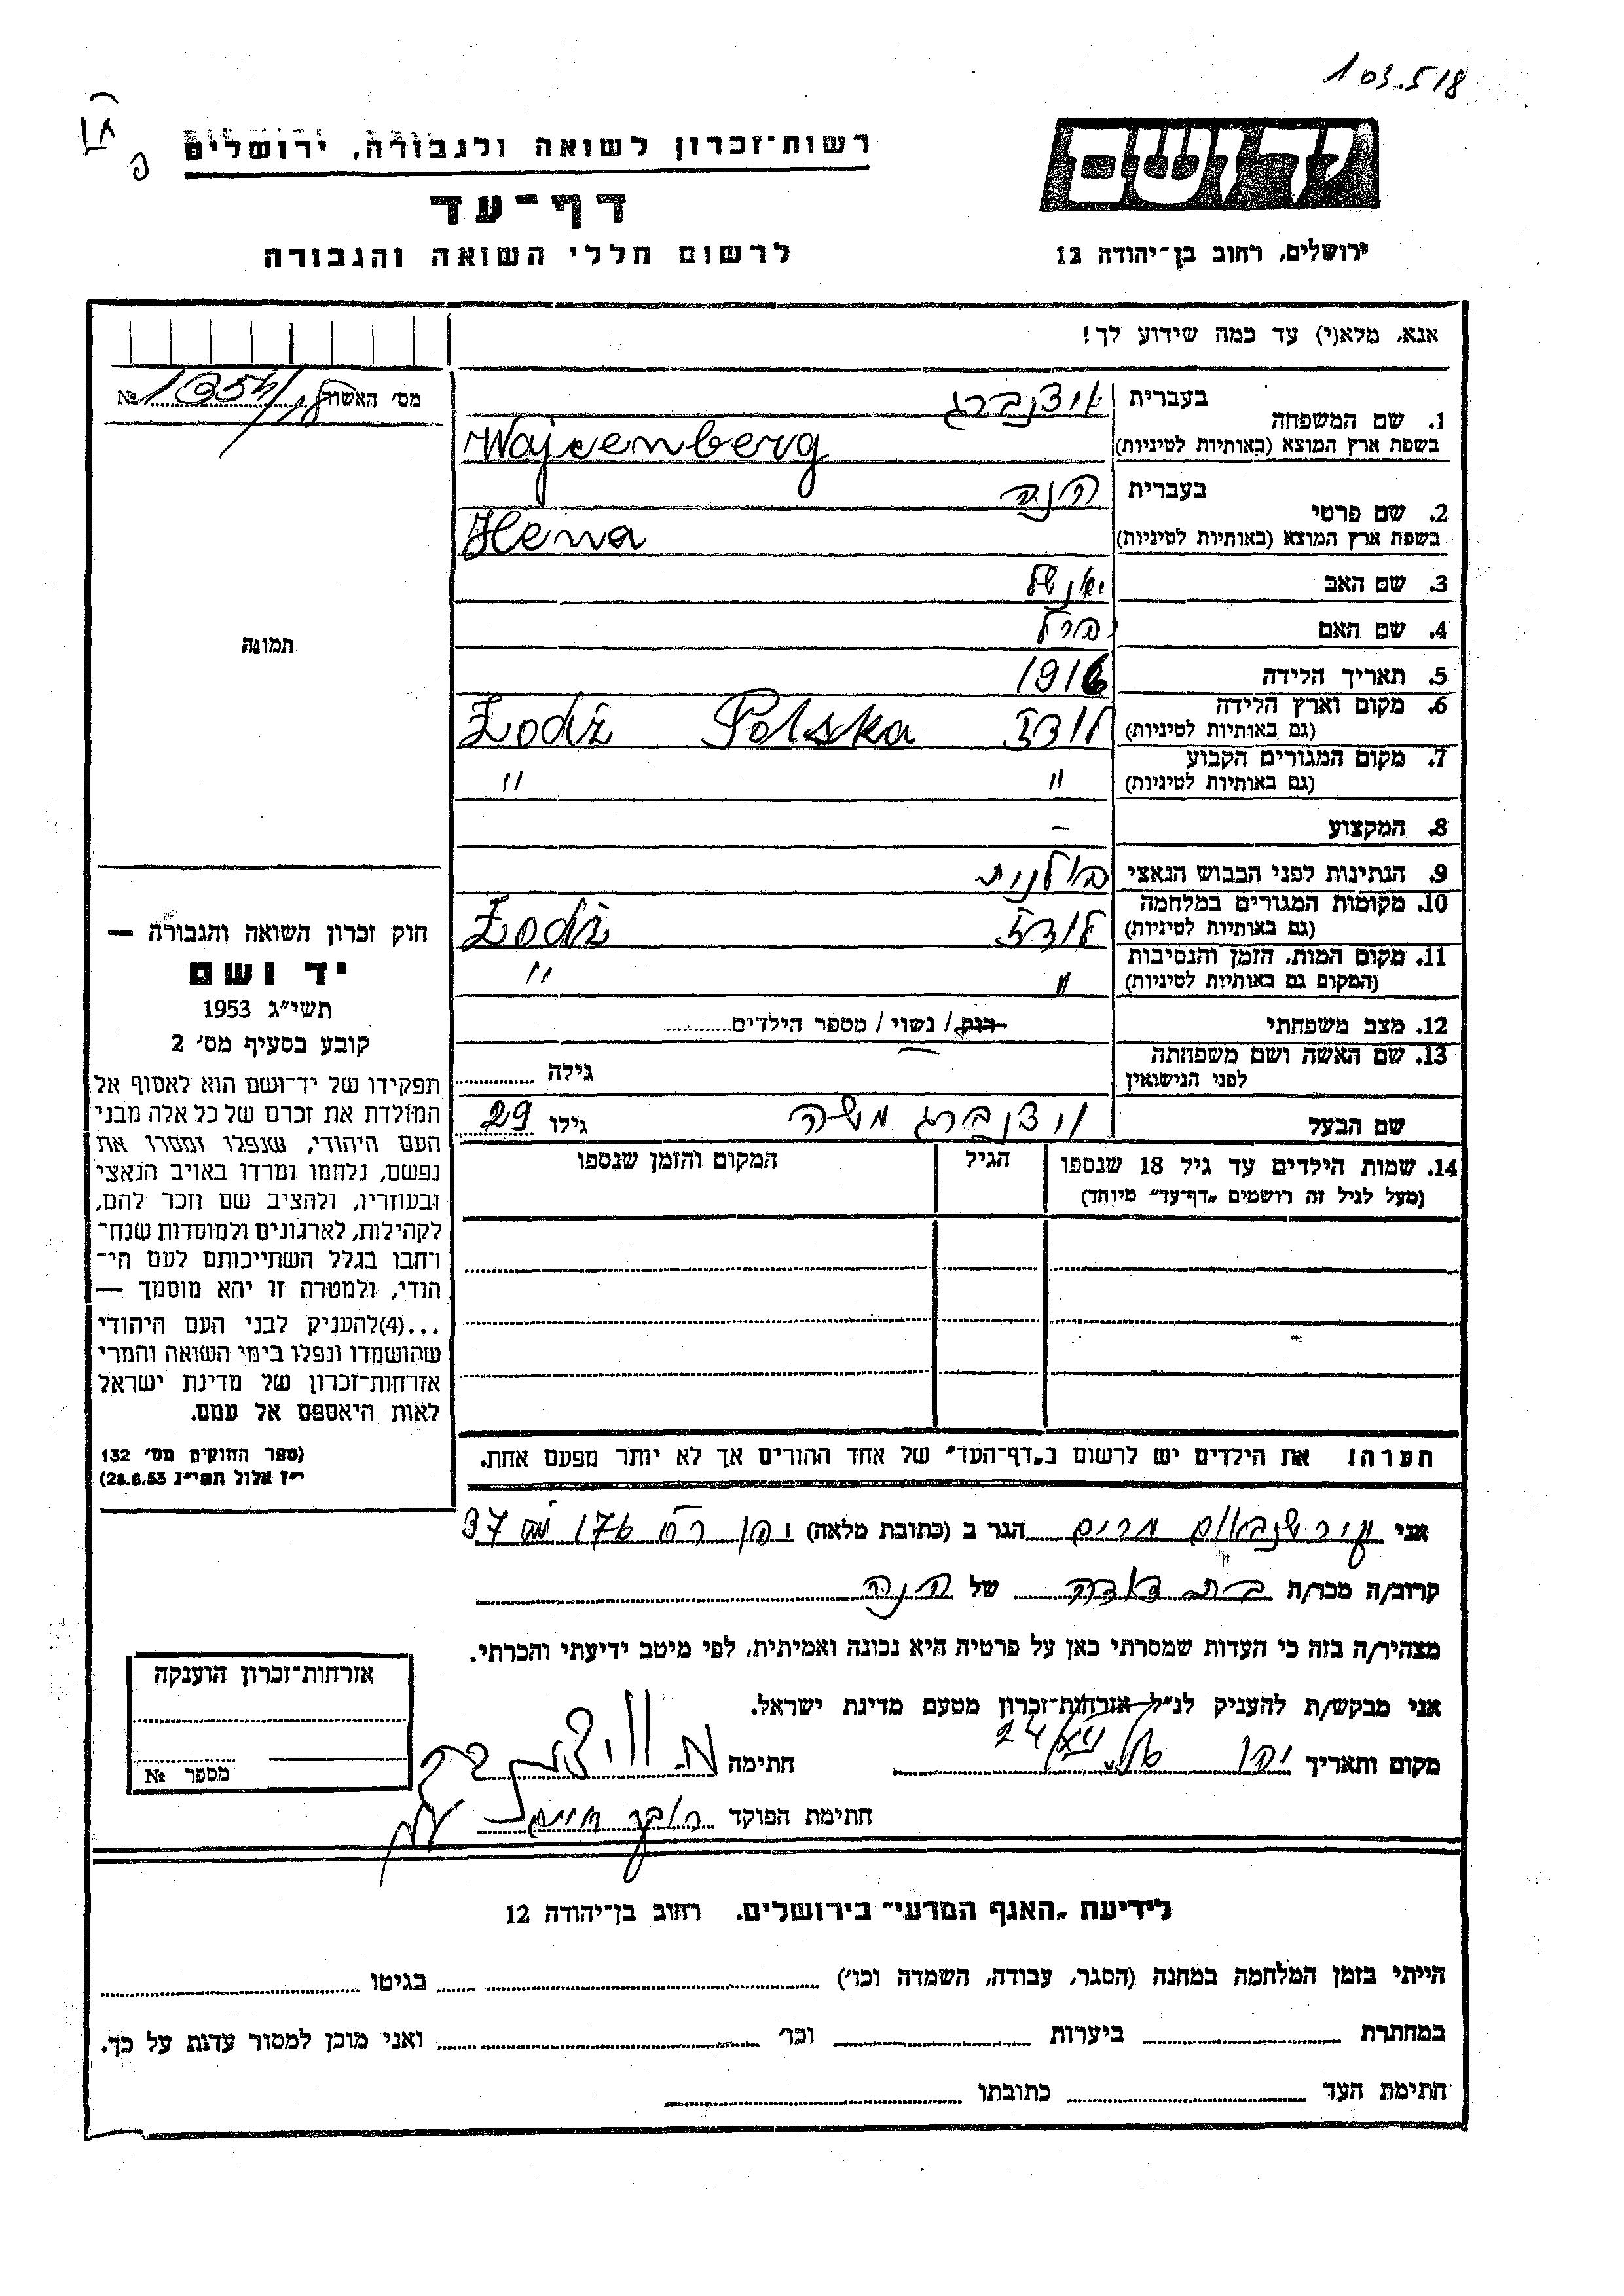 103.518
רשות־זכרון לשואה ולגבורה, ירושלים
דף־עד
לרשום חללי השואה והגבורה
יד ושם
ירושלים, רחוב בן־יהודה 12
אנא, מלא(י) עד כמה שידוע לך!
מס' האשור №
1. שם המשפחה
בעברית וצנברג
בשפת ארץ המוצא (באותיות לטיניות) Wajcenberg
2. שם פרטי
בעברית הנה
בשפת ארץ המוצא (באותיות לטיניות) Hena
3. שם האב
4. שם האם
5. תאריך הלידה 1916
6. מקום וארץ הלידה
(גם באותיות לטיניות) לודז Polska Łodź
7. מקום המגורים הקבוע
(גם באותיות לטיניות) " "
8. המקצוע –
9. הנתינות לפני הכבוש הנאצי פולנית
10. מקומות המגורים במלחמה
(גם באותיות לטיניות) לודז Łodź
11. מקום המות, הזמן והנסיבות
(המקום גם באותיות לטיניות) " "
12. מצב משפחתי רוק / נשוי / מספר הילדים
13. שם האשה ושם משפחתה
לפני הנישואין גילה
שם הבעל וצנברג משה גילו 29
14. שמות הילדים עד גיל 18 שנספו
(מעל לגיל זה רושמים „דף־עד" מיוחד)
הגיל
המקום והזמן שנספו
הערה! את הילדים יש לרשום ב„דף־העד" של אחד ההורים אך לא יותר מפעם אחת.
תמונה
חוק זכרון השואה והגבורה —
יד ושם
תשי"ג 1953
קובע בסעיף מס' 2
תפקידו של יד־ושם הוא לאסוף אל
המולדת את זכרם של כל אלה מבני
העם היהודי, שנפלו ומסרו את
נפשם, נלחמו ומרדו באויב הנאצי
ובעוזריו, ולהציב שם וזכר להם,
לקהילות, לארגונים ולמוסדות שנח־
רחבו בגלל השתייכותם לעם הי־
הודי, ולמטרה זו יהא מוסמך —
...(4)להעניק לבני העם היהודי
שהושמדו ונפלו בימי השואה והמרי
אזרחות־זכרון של מדינת ישראל
לאות היאספם אל עמם.
(ספר החוקים מס' 132
י"ז אלול תשי"ג 28.8.53)
אני מרים הגר ב (כתובת מלאה) 37 176
קרוב/ה מכר/ה בת דודה של הנה
מצהיר/ה בזה כי העדות שמסרתי כאן על פרטיה היא נכונה ואמיתית, לפי מיטב ידיעתי והכרתי.
אני מבקש/ת להעניק לנ"ל אזרחות־זכרון מטעם מדינת ישראל.
מקום ותאריך חתימה
חתימת הפוקד
אזרחות־זכרון הוענקה
מספר №
לידיעת „האגף המדעי" בירושלים, רחוב בן־יהודה 12
הייתי בזמן המלחמה במחנה (הסגר, עבודה, השמדה וכו') בגיטו
במחתרת ביערות וכו' ואני מוכן למסור עדות על כך.
חתימת העד כתובתו